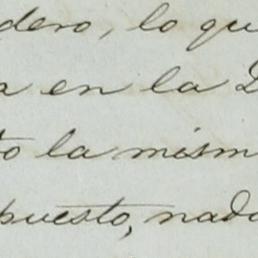 dero, lo qu
a en la D
to la mism
puesto, nada